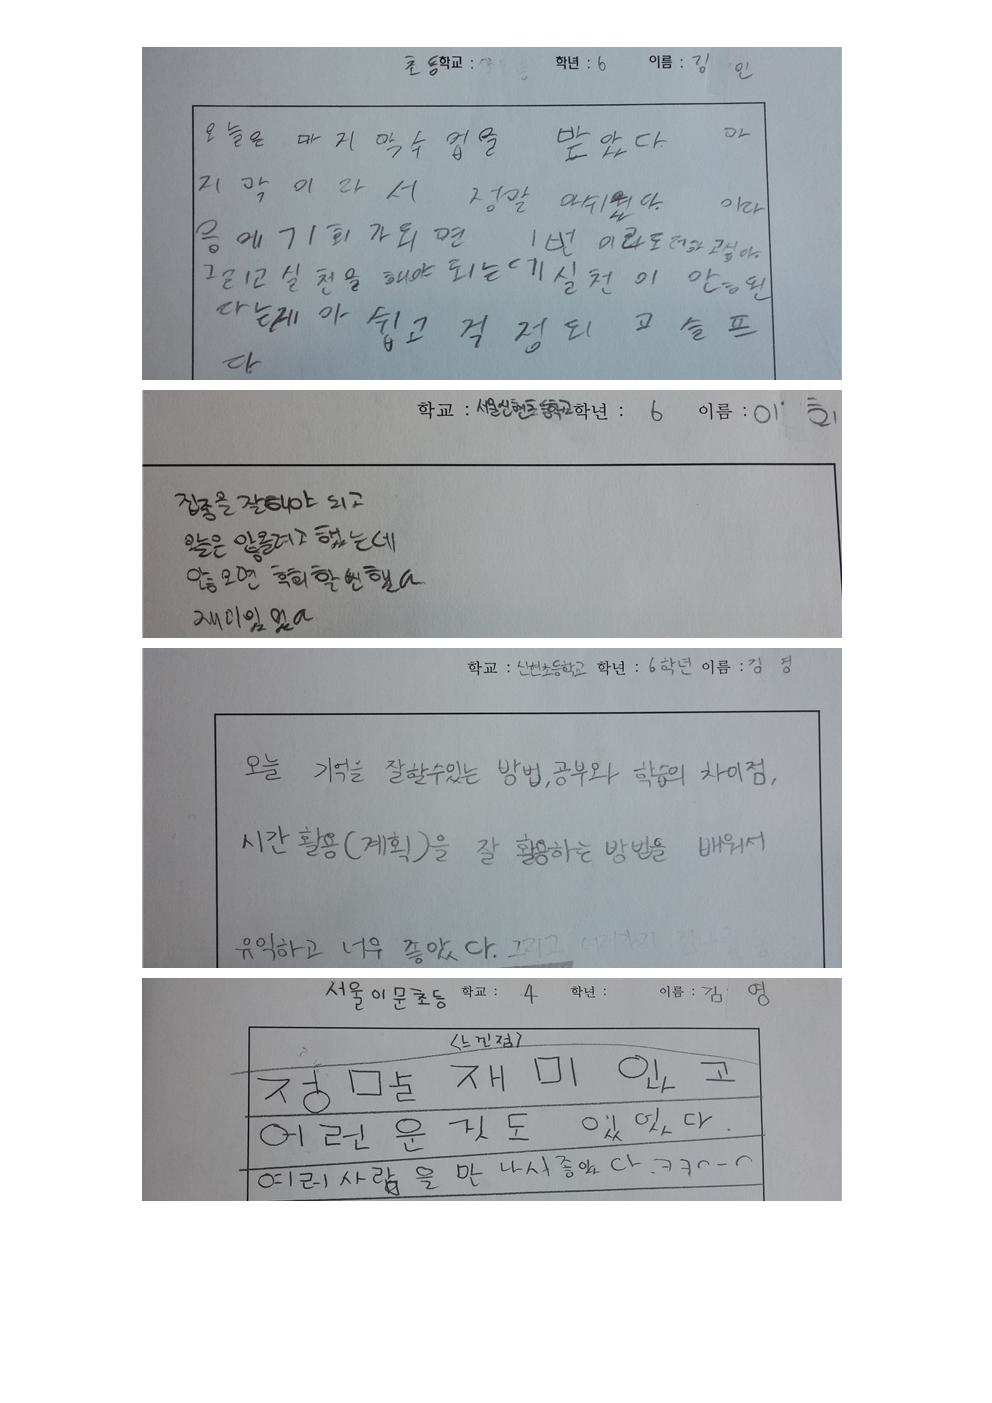 초등학교 : 학년 : 6 이름 : 김 인
오늘은 마지막수업을 받았다 마
지막이라서 정말 아쉬웠다. 이다
음에 기회가되면 1번 이라도 더하고싶다.
그리고 실천을 해야 되는데 실천이 안된
다는게 아쉽고 걱정되고 슬프
다
학교 : 서울신현초등학교 학년 : 6 이름 : 이 희
집중을 잘해야 되고
오늘은 않올려고 했는데
않오면 후회할뻔했다
재미있었다
학교 : 신천초등학교 학년 : 6학년 이름 : 김 경
오늘 기억을 잘할수있는 방법,공부와 학습의 차이점,
시간 활용(계획)을 잘 활용하는 방법을 배워서
유익하고 너무 좋았다. 그리고
서울이문초등 학교 : 4 학년 : 이름 : 김 영
<느낀점>
정말 재미있고
어려운 것도 있었다.
여러사람을 만나서좋았다.ㅋㅋ^-^